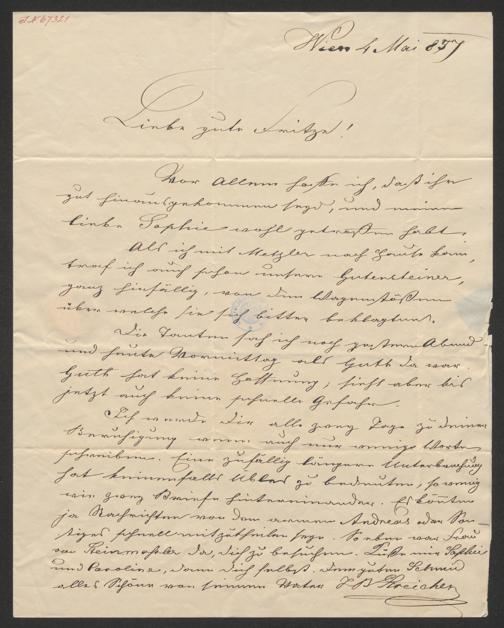 I.N. 67321
Wien 4 Mai 857
Liebe gute Fritze!
Vor Allem hoffe ich, daß ihr
gut hinausgekommen seyd, und meine
liebe Sophie wohl getroffen habt.
Als ich mit Metzler nach Hause kam,
traf ich auch schon unsere Gutensteiner,
ganz hinfällig, von den Wagenstößen
über welche sie sich bitter beklagten.
Die Tanten sah ich noch gestern Abend
und heute Vormittag als Guth da war.
Guth hat keine Hoffnung, sieht aber bis
jetzt auch keine schnelle Gefahr.
Ich werde Dir alle zwey Tage zu deiner
Beruhigung wenn auch nur wenige Worte
schreiben. Eine zufällig längere Unterbrechung
hat keinenfalls Übles zu bedeuten, so wenig
wie zwey Briefe hintereinander. Es könnten
ja Nachrichten von dem armen Andreas oder Son-
stiges schnell mitzutheilen seyn. So eben war Frau
von da, Dich zu besuchen. Küsse mir Sophie
und Caroline, dann Dich selbst. Dem guten
alles Schöne von seinem Vater J B Streicher